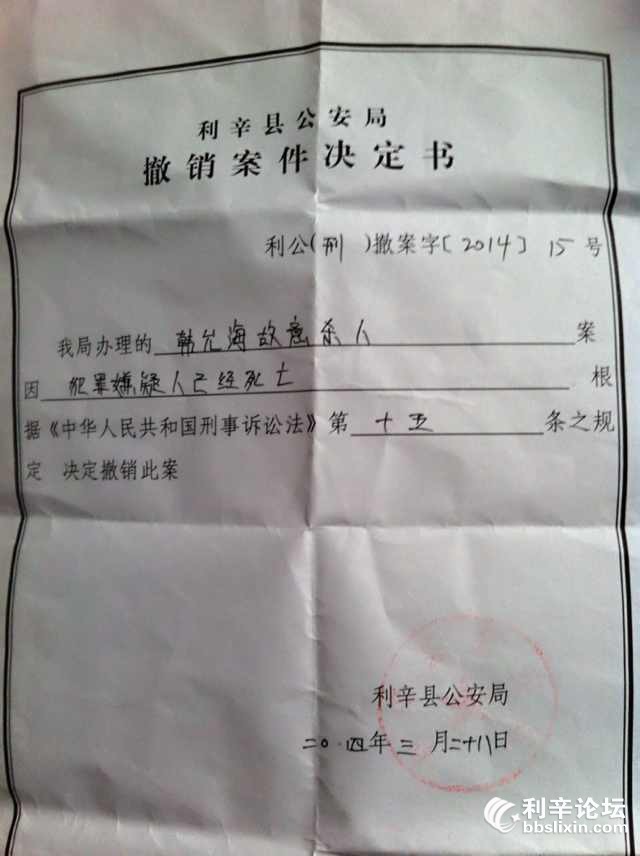 利辛县公安局
撤销案件决定书
利公(刑)撤案字[2014]15号
我局办理的韩允海故意杀人案
因犯罪嫌疑人已经死亡根
据《中华人民共和国刑事诉讼法》第十五条之规
定 决定撤销此案
利辛县公安局
二〇一四年三月二十八日
利辛论坛
bbslixin.com